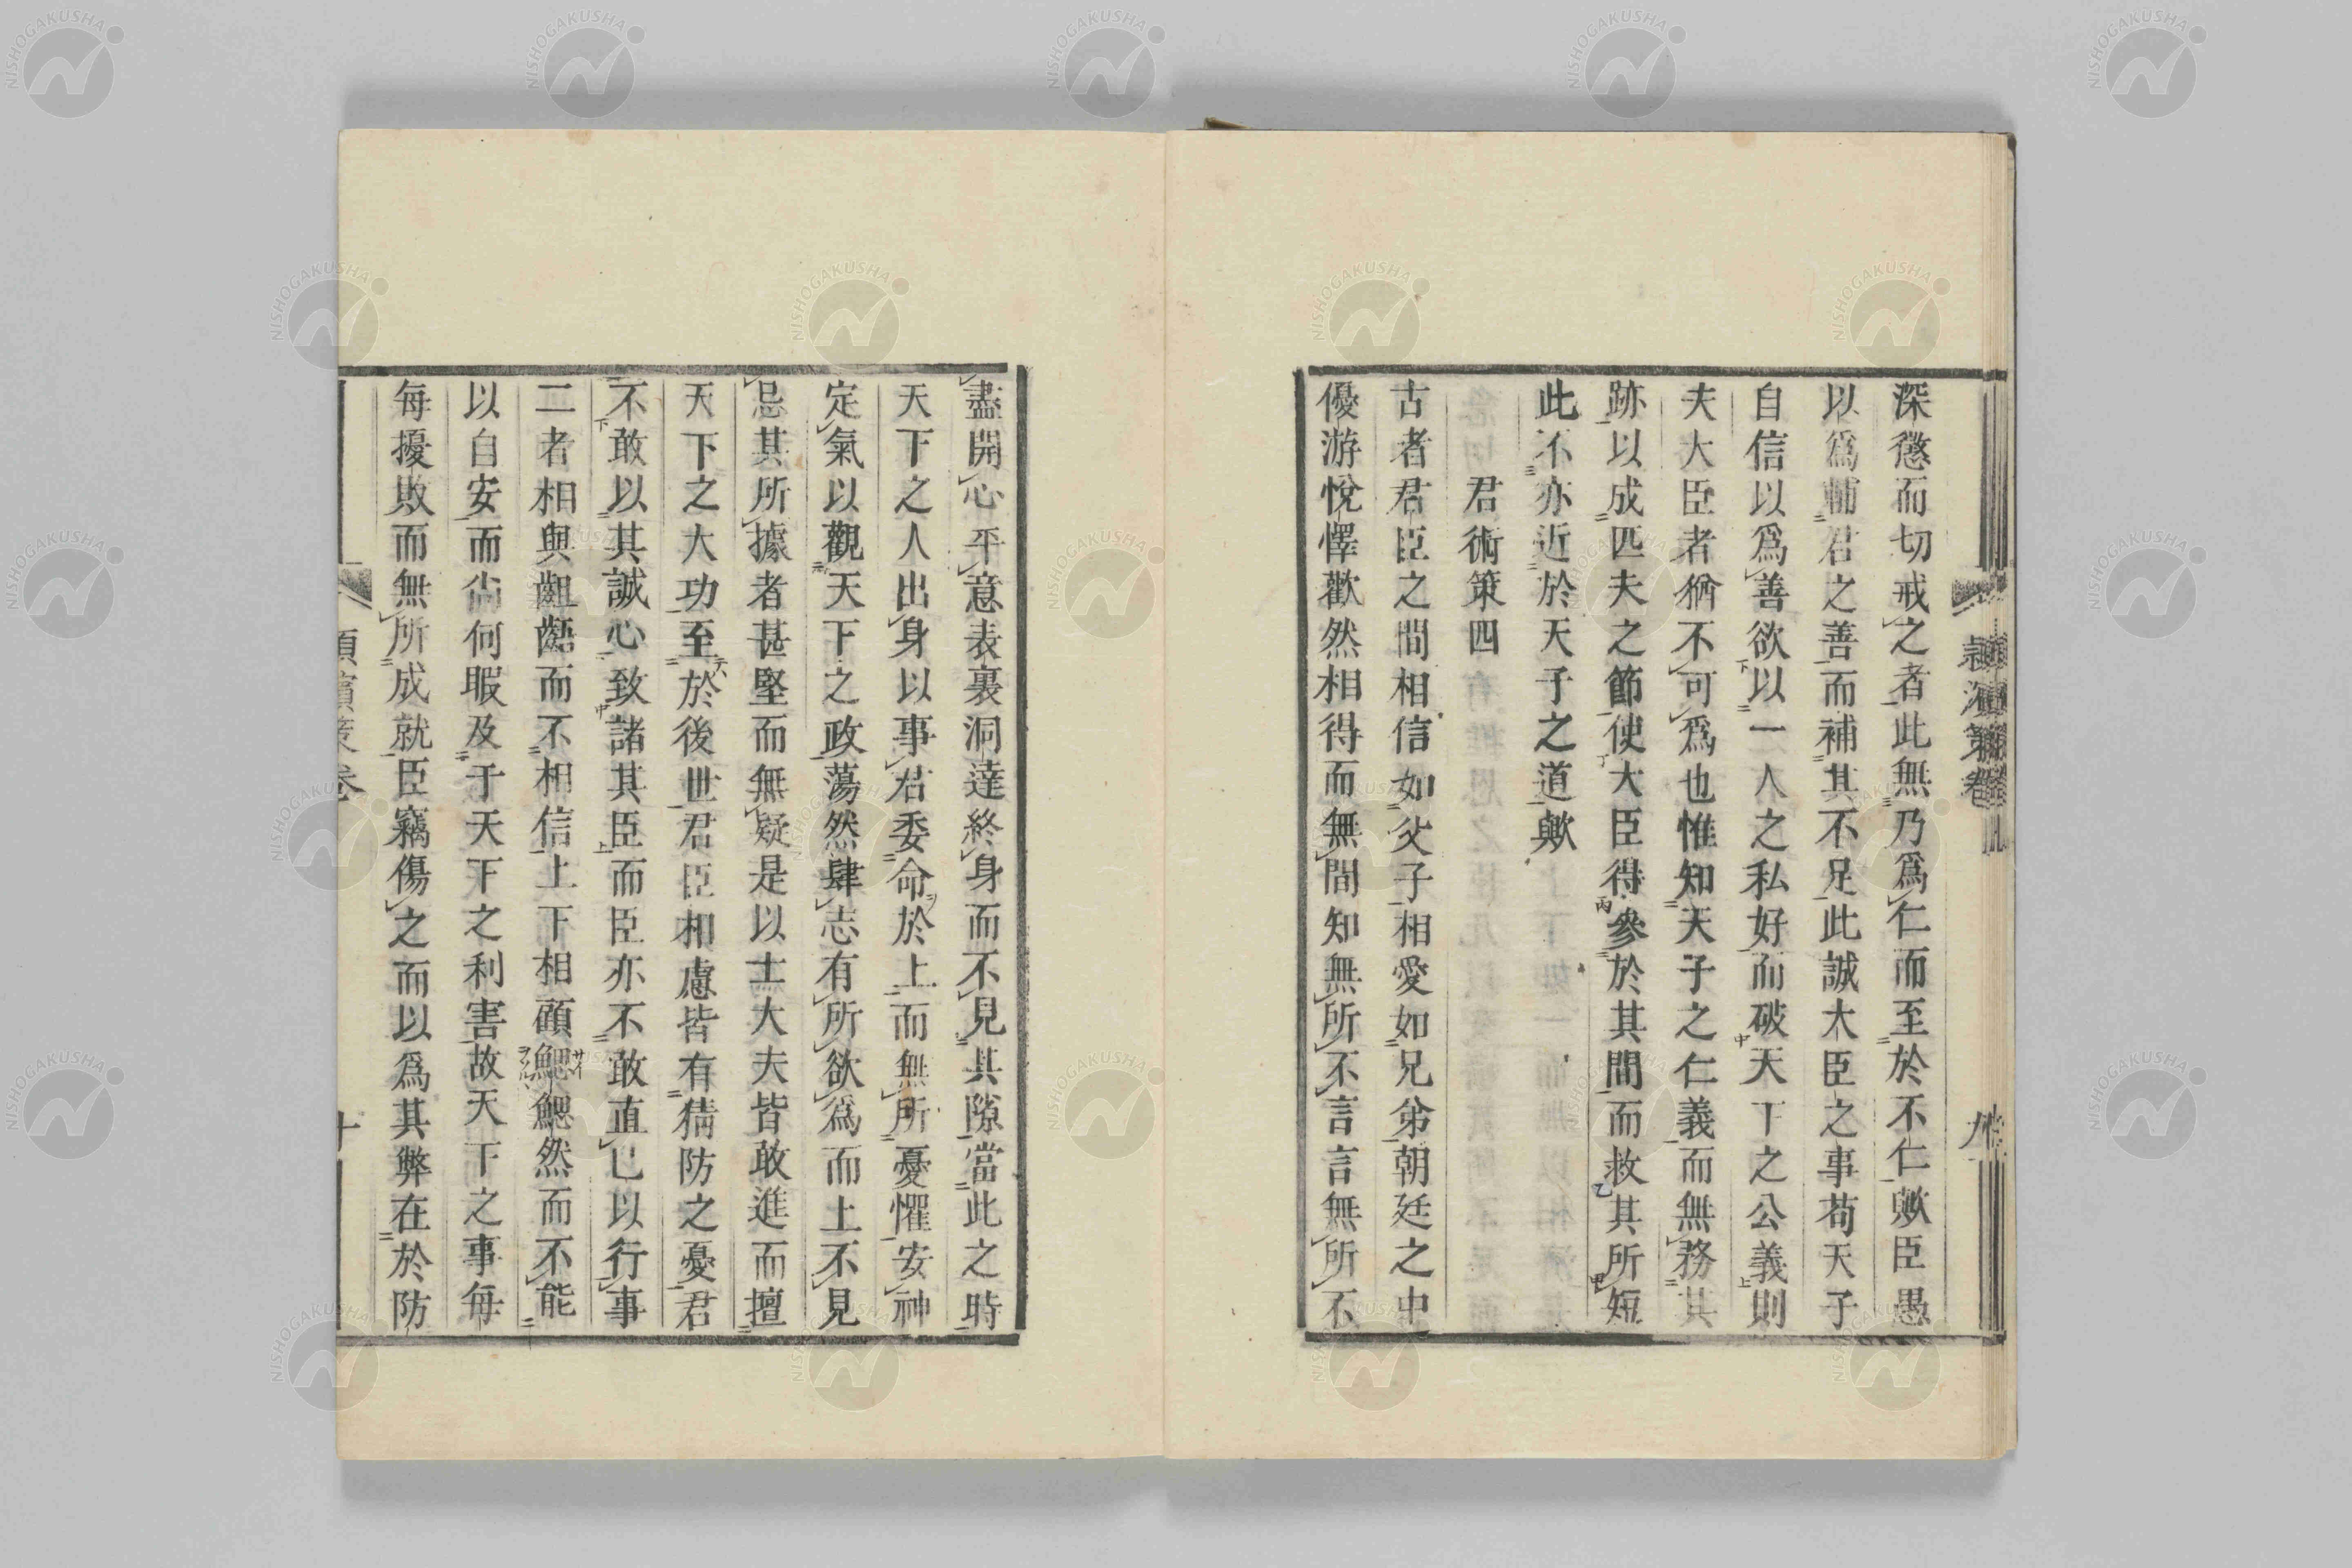 深懲而切戒之者此無乃爲仁而至於不仁歟臣愚
以爲輔君之善而補其不足此誠大臣之事苟天子
自信以爲善欲以一人之私好而破天下之公義則
夫大臣者猶不可爲也惟知天子之仁義而無務其
跡以成匹夫之節使大臣得參於其間而救其所短
此不亦近於天子之道歟
君術策四
古者君臣之間相信如父子相愛如兄弟朝廷之中
優游悅懌歡然相得而無間知無所不言言無所不
盡開心平意表裏洞達終身而不見其隙當此之時
天下之人出身以事君委命於上而無所憂懼安神
定氣以觀天下之政蕩然肆志有所欲爲而上不見
忌其所據者甚堅而無疑是以士大夫皆敢進而擅
天下之大功至於後世君臣相慮皆有猜防之憂君
不敢以其誠心致諸其臣而臣亦不敢直已以行事
二者相與齟齬而不相信上下相顧鰓鰓然而不能
以自安而尙何暇及于天下之利害故天下之事每
每擾敗而無所成就臣竊傷之而以爲其弊在於防
頴濱策卷
十
九
NISHOGAKUSHA